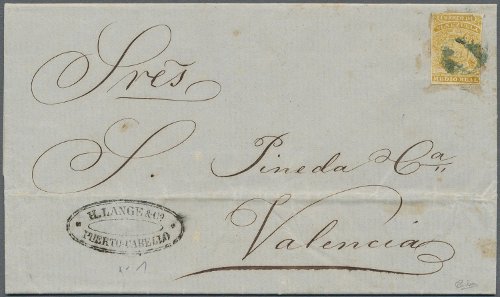 Sres
S. Pineda Ca
Valencia
H. LANGE & Co
PUERTO-CABELLO
MEDIO REAL